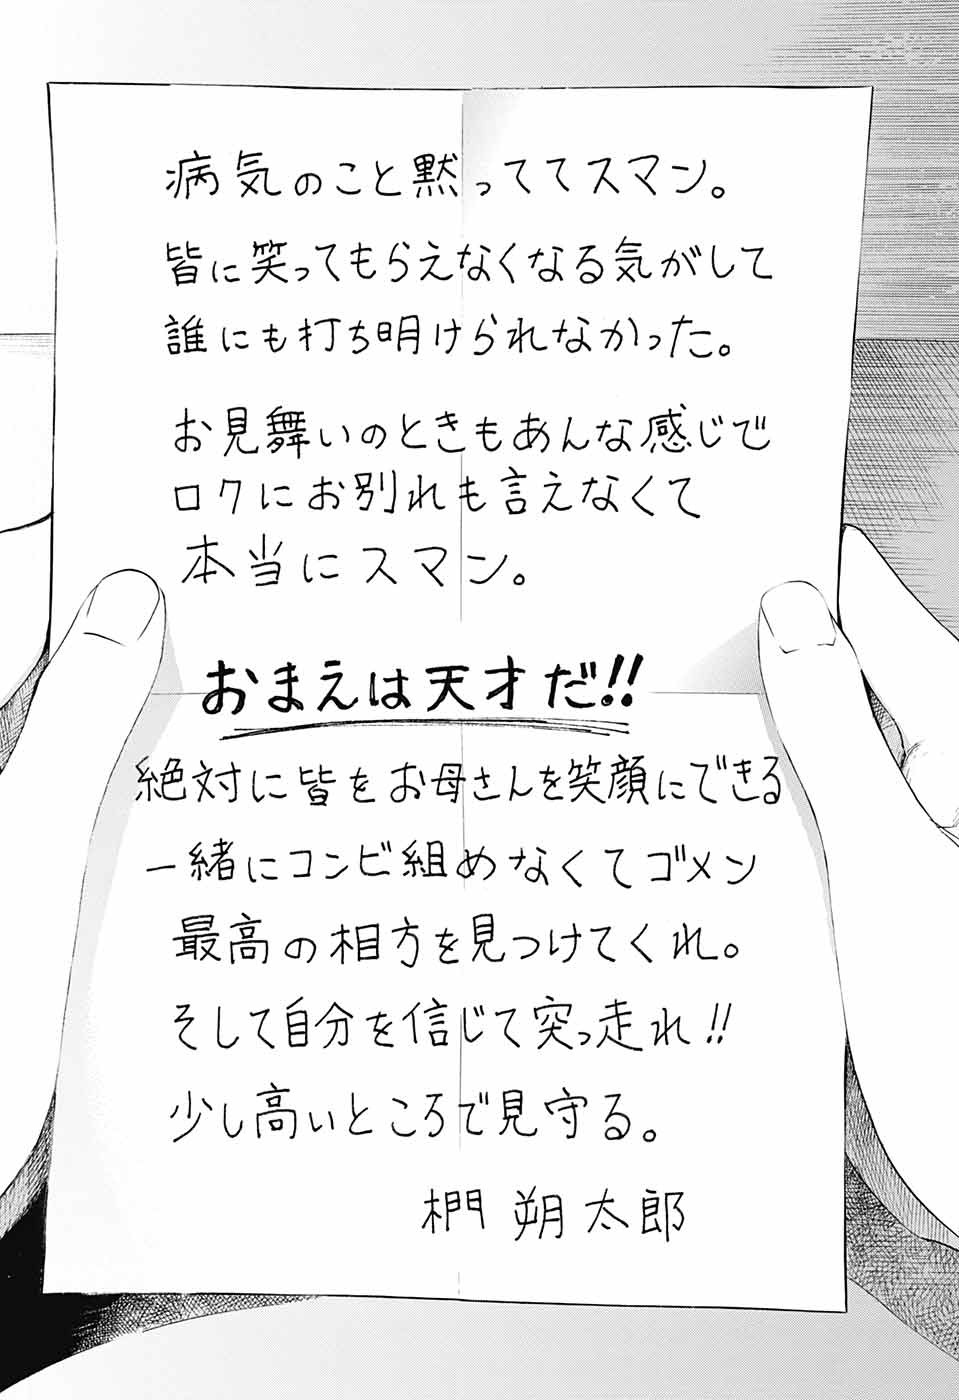 病気のこと黙っててスマン。
皆に笑ってもらえなくなる気がして
誰にも打ち明けられなかった。
お見舞いのときもあんな感じで
ロクにお別れも言えなくて
本当にスマン。
おまえは天才だ!!
絶対に皆をお母さんを笑顔にできる
一緒にコンビ組めなくてゴメン
最高の相方を見つけてくれ。
そして自分を信じて突っ走れ!!
少し高いところで見守る。
椚 朔太郎